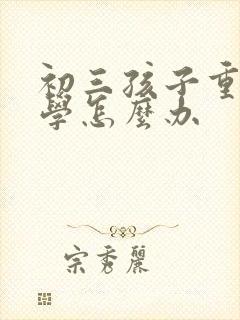 初三孩子重
學怎麼办
宗秀麗